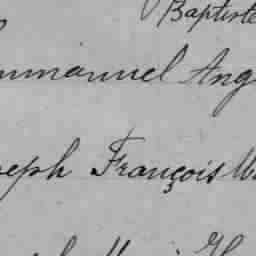 Baptiste
mmanuel Ang
seph François W